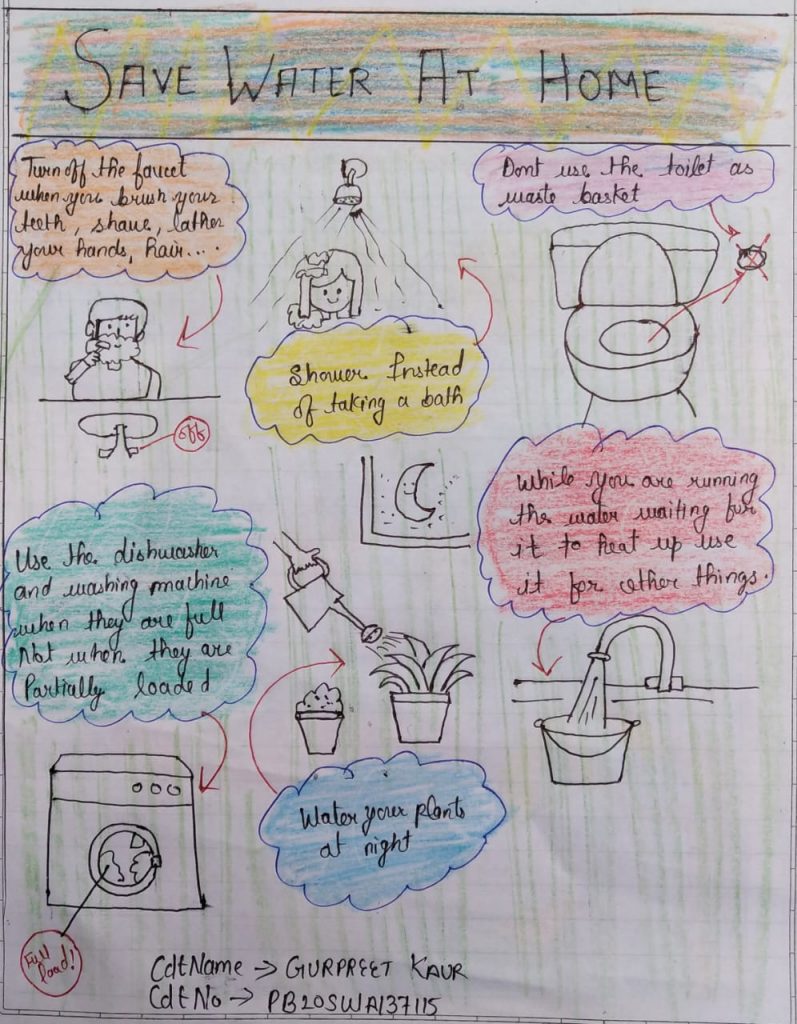 SAVE WATER AT HOME
Turn off the faucet
when you brush your
teeth, shave, lather
your hands, hair....
Dont use the toilet as
waste basket
Shower Instead
of taking a bath
off
While you are running
the water waiting for
it to heat up use
it for other things.
Use the dishwasher
and washing machine
when they are full
Not when they are
Partially loaded
Water your plants
at night
Full
load!
Cdt Name → GURPREET KAUR
Cdt No → PB20SWA137115